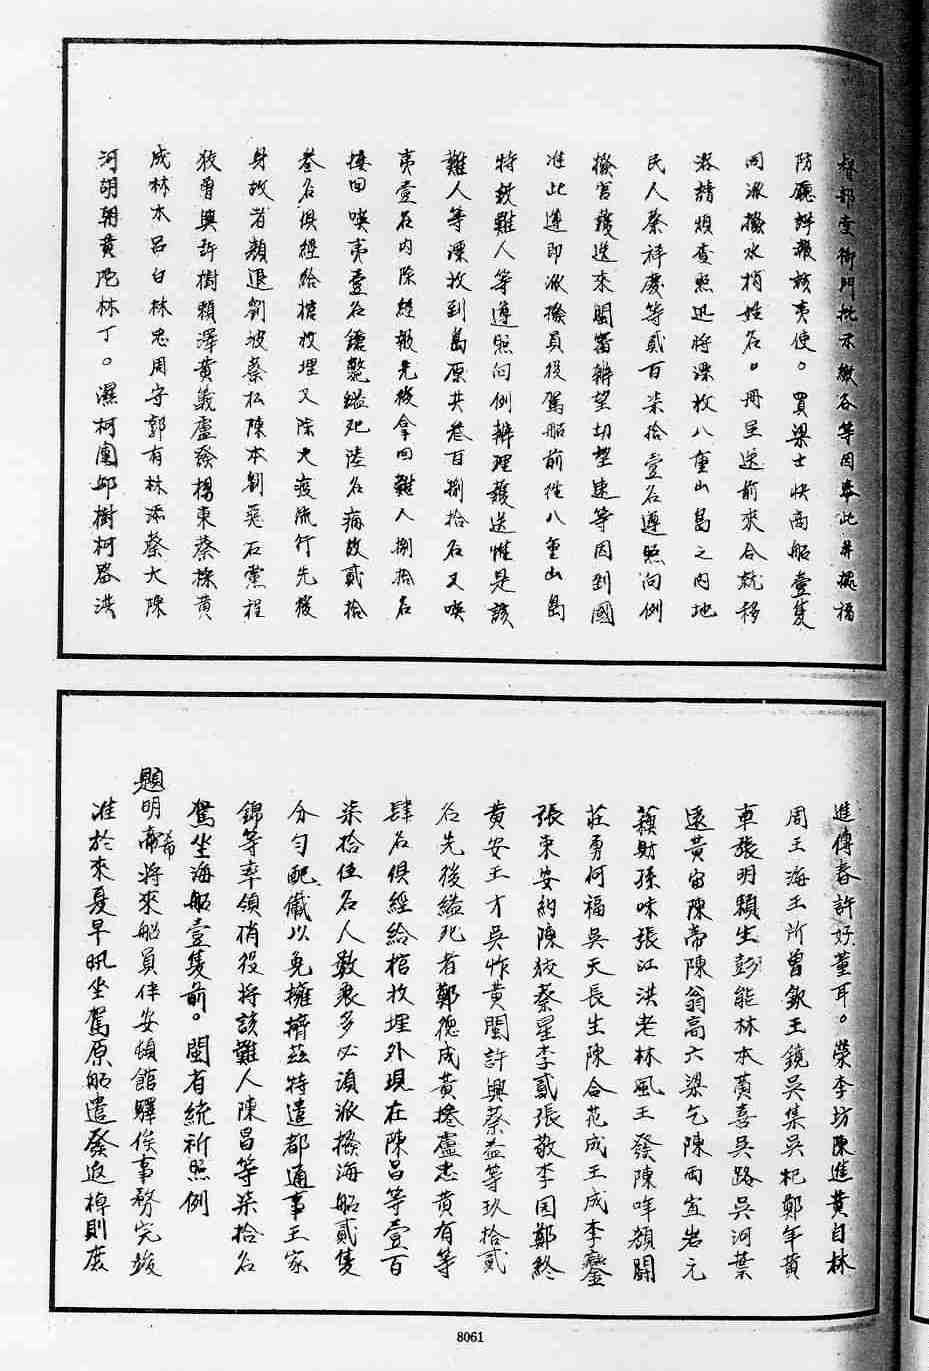 督部堂衙門批示繳各等因奉此并據福
防廳詳報該夷使。買梁士快商船壹隻
同派撥水梢姓名。冊呈送前來合就移
咨請煩查照迅將漂收八重山島之内地
民人蔡祥慶等貳百柒拾壹名遵照向例
撥官護送來閩審辦望切望速等因到國
准此遵即派撥員役駕船前徃八重山島
特該難人等遵照向例辦理護送惟是該
難人等漂收到島原共叁百捌拾名又㗸
夷壹名内除經報先後拿回難人捌拾名
接回㗸夷壹名鎗斃縊死陸名病故貳拾
叁名俱經給棺收埋又除天疫流行先後
身故者顏退劉波蔡松陳本劉惡石黨程
狡曾興許樹賴澤黄義盧發楊東蔡探黄
成林本呂白林忠周守郭有林添蔡大陳
河胡朝黄陀林丁。濕柯圍邱樹柯路洪
進傅春許好董耳。榮李坊陳進黄自林
周王海王所曾欽王鏡吳集吳杞鄭年黄
車張明賴生彭能林本黄喜吳路吳河葉
遠黄宙陳帝陳翁高六梁乞陳雨宜岩元
蘓財孫味張江洪老林風王發陳哖顏開
莊勇何福吳天長生陳合范成王成李鑾
張東安約陳狡蔡星李貳張敬李因鄭終
黄安王才吳炸黄閩許興蔡益等玖拾貳
名先後縊死者鄭德成黄捲盧忠黄有等
肆名俱經給棺收埋外現在陳昌等壹百
柒拾伍名人數衆多必湏派撥海船貳隻
分勻配儎以免擁擠茲特遣都通事王家
錦等率領梢役將該難人陳昌等柒拾名
駕坐海船壹隻前。閩省統祈照例
題明希將來船員伴安頓館驛俟事務完竣
准於來夏早汛坐駕原船遣發返棹則庶
8061